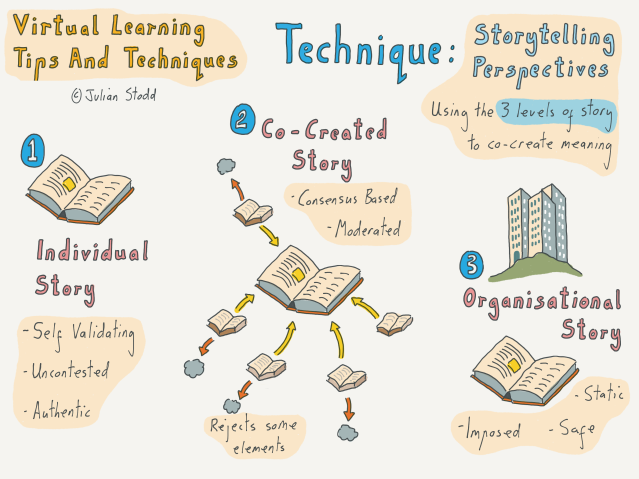 Virtual Learning
Tips And Techniques
© Julian Stodd
Technique:
Storytelling
Perspectives
Using the 3 levels of story
to co-create meaning
1
Individual
Story
- Self Validating
- Uncontested
- Authentic
2
Co-Created
Story
- Consensus Based
- Moderated
Rejects some
elements
3
Organisational
Story
- Static
- Imposed - Safe